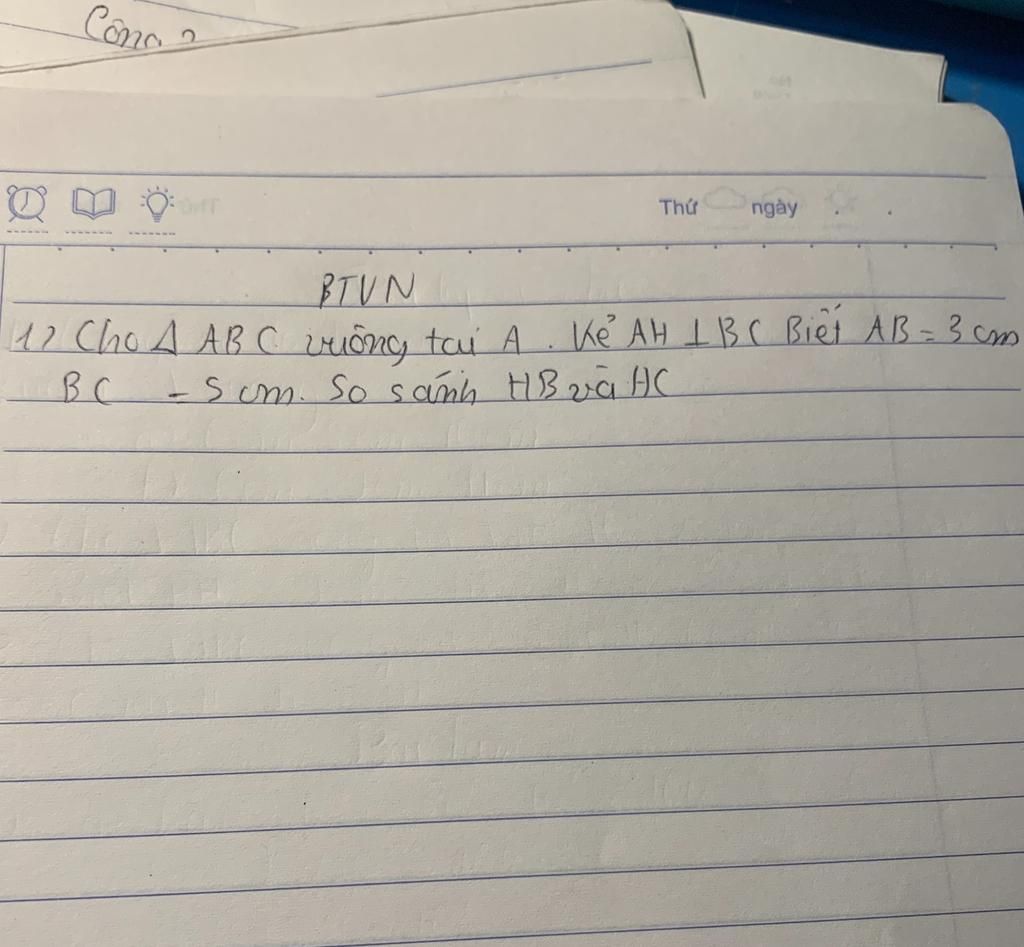 Công
Thứ ngày
BTVN
1) Cho Δ ABC vuông tại A. Kẻ AH ⊥ BC Biết AB = 3 cm
BC = 5 cm. So sánh HB và HC